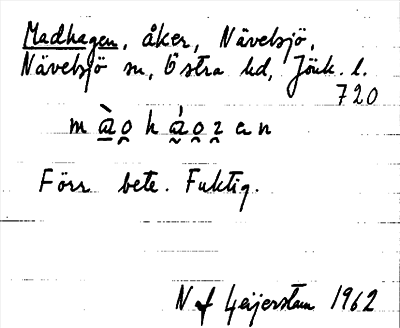 Madhagen, åker, Nävelsjö,
Nävelsjö sn, Östra hd, Jönk. l.
720
Förr bete. Fuktig.
N af Geijerstam 1962